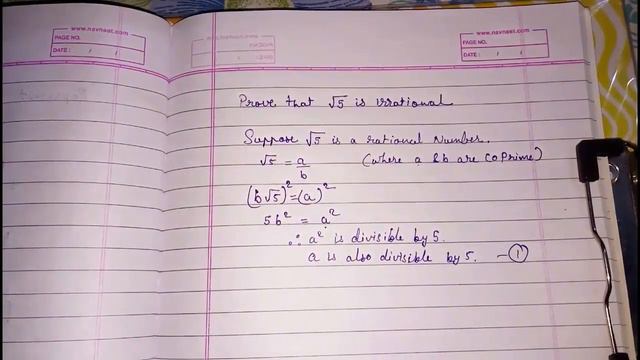 www.navneet.com
PAGE NO.
DATE : / /
www.navneet.com
PAGE NO.
DATE : / /
Prove that √5 is irrational
Suppose √5 is a rational Number.
√5 = a/b (where a & b are coprime)
(b√5)² = (a)²
5b² = a²
∴ a² is divisible by 5.
a is also divisible by 5. — ①